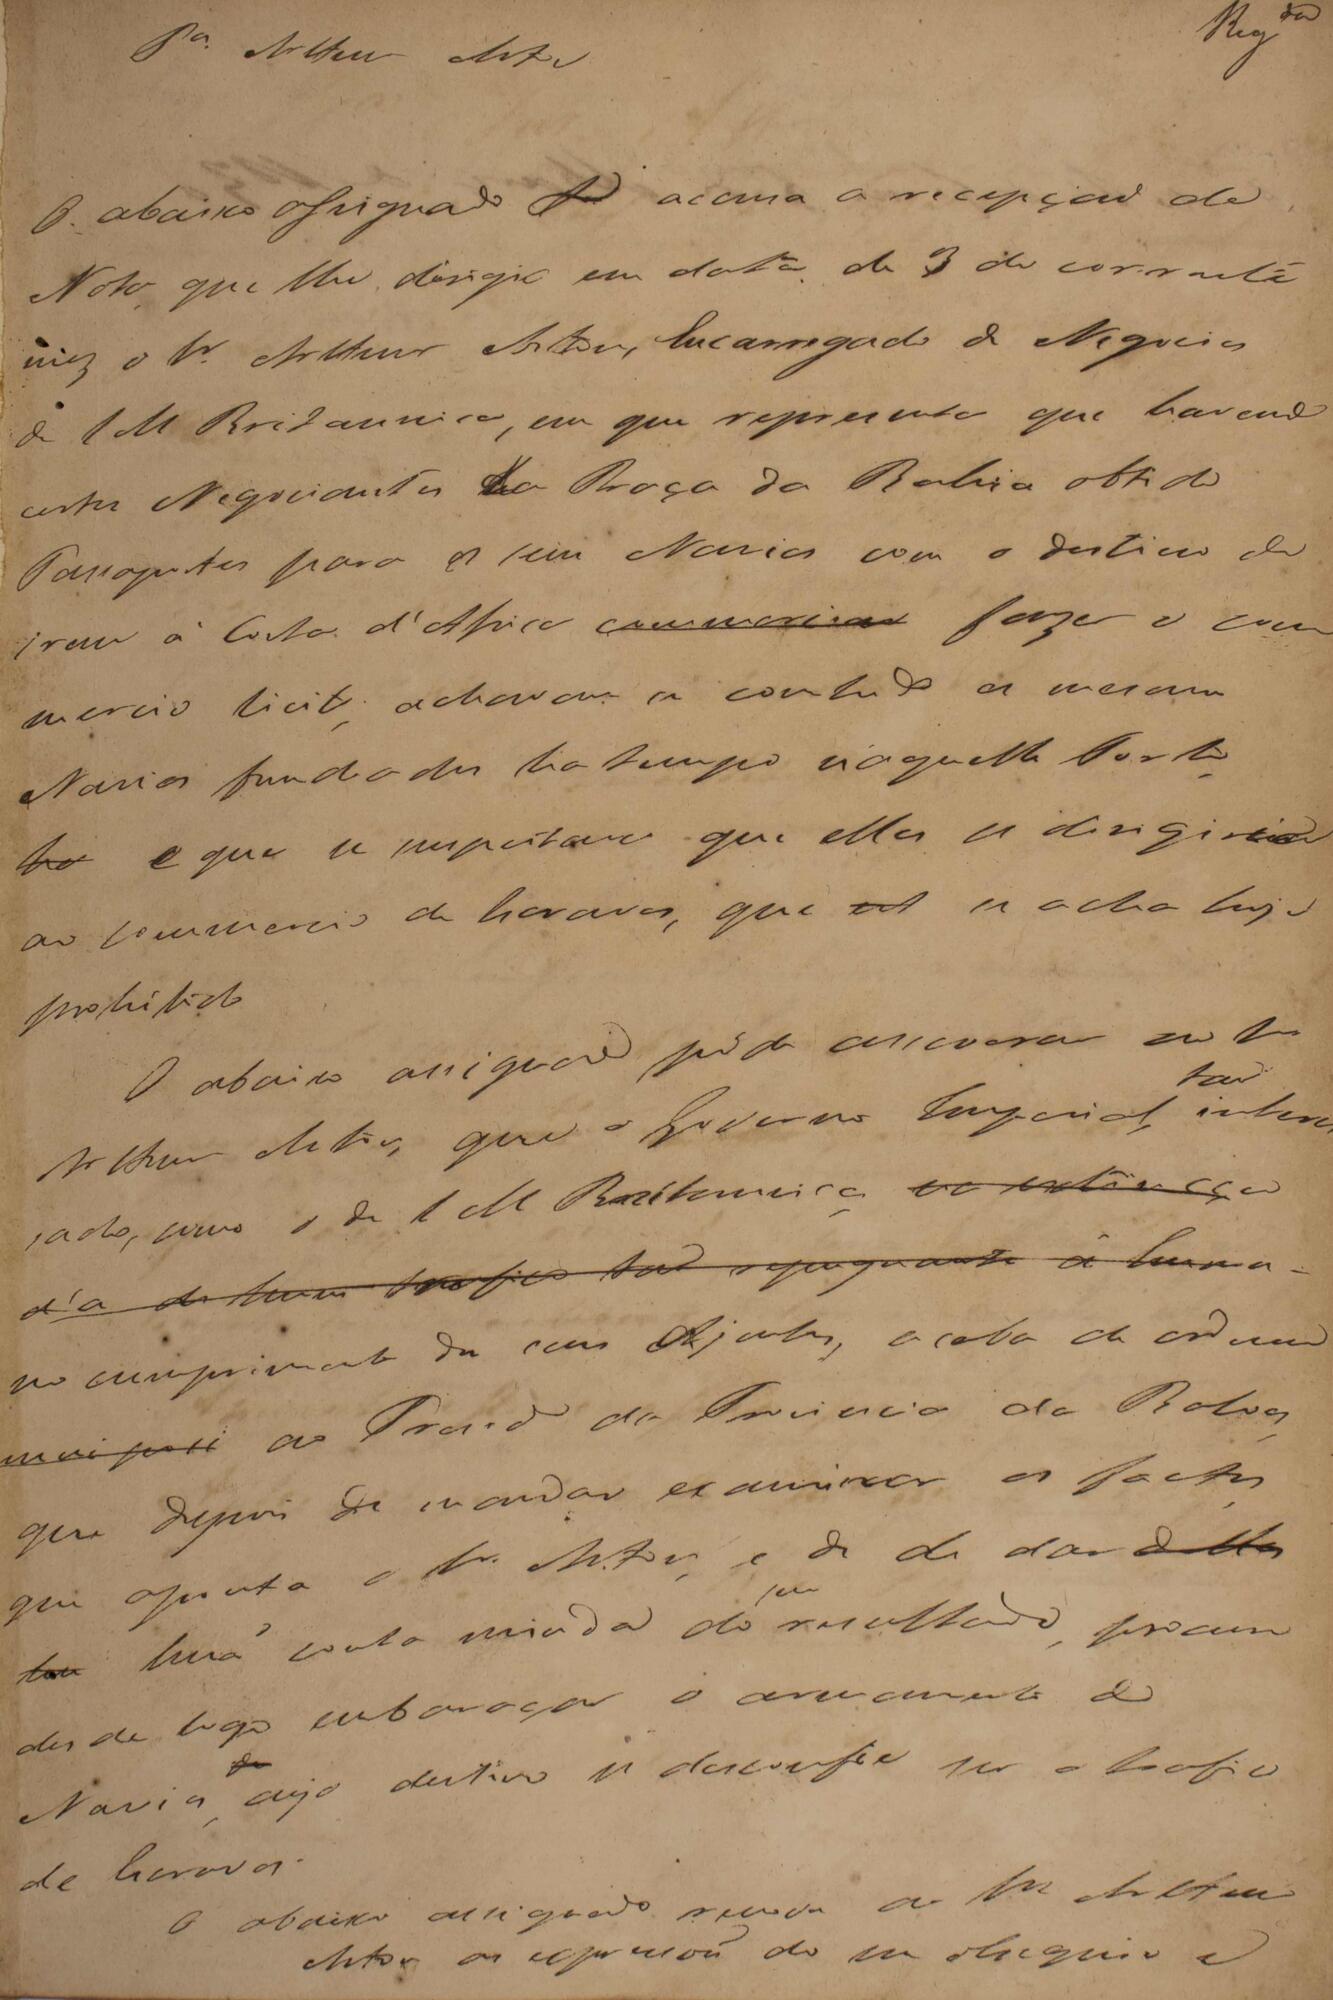 Pa. Arthur Aston
Regda
O abaixo assignado accusa a recepção da
Nota, que lhe dirigio em data de 3 do corrente
mez o Sr. Arthur Aston, Encarregado de Negocios
de S M Britannica, em que representa que havendo
certos Negociantes da Praça da Bahia obtido
Passaportes para os seus Navios com o destino de
irem á Costa d'Africa commerciar fazer o com
mercio licito, achavam se comtudo os mesmos
Navios fundeados ha tempo n'aquelle Porto,
ha e que se suspeitava que elles se dirigirião
ao Commercio de Escravos, que está se acha hoje
prohibido
O abaixo assignado póde asseverar ao Sr
Arthur Aston, que o Governo Imperial, tão interes
sado, como o de S M Britannica, na extincção
d'a de hum trafico tão repugnante á huma-
no cumprimento dos seus Ajustes, acaba de ordenar
ao Presid.e da Provincia da Bahia,
que depois de mandar examinar os factos,
que aponta o Sr. Aston, e de dar delles
hua conta miuda do seu resultado, procure
desde logo embaraçar o armamento de
Navios, de cujo destino se desconfie ser o trafico
de Escravos.
O abaixo assignado renova ao Sr Arthur
Aston as expressões do seu obsequio e